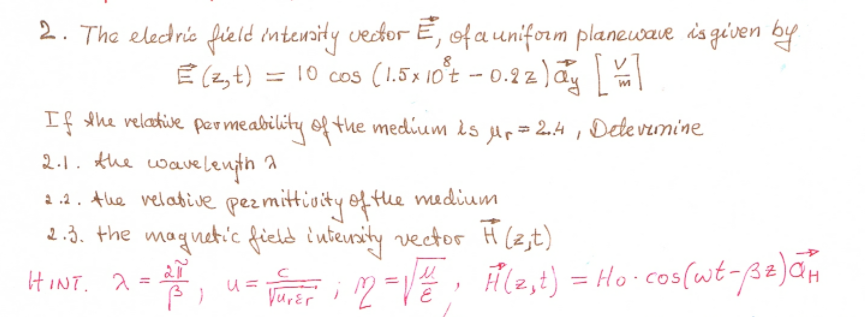 2. The electric field intensity vector E⃗, of a uniform plane wave is given by
E⃗ (z,t) = 10 cos (1.5x10⁸t - 0.2z) a⃗y [V/m]
If the relative permeability of the medium is μr = 2.4, Determine
2.1. the wavelength λ
2.2. the relative permittivity of the medium
2.3. the magnetic field intensity vector H⃗ (z,t)
HINT. λ = 2π/β, u = c/√μrεr ; η = √μ/ε, H⃗(z,t) = Ho·cos(ωt-βz) a⃗H